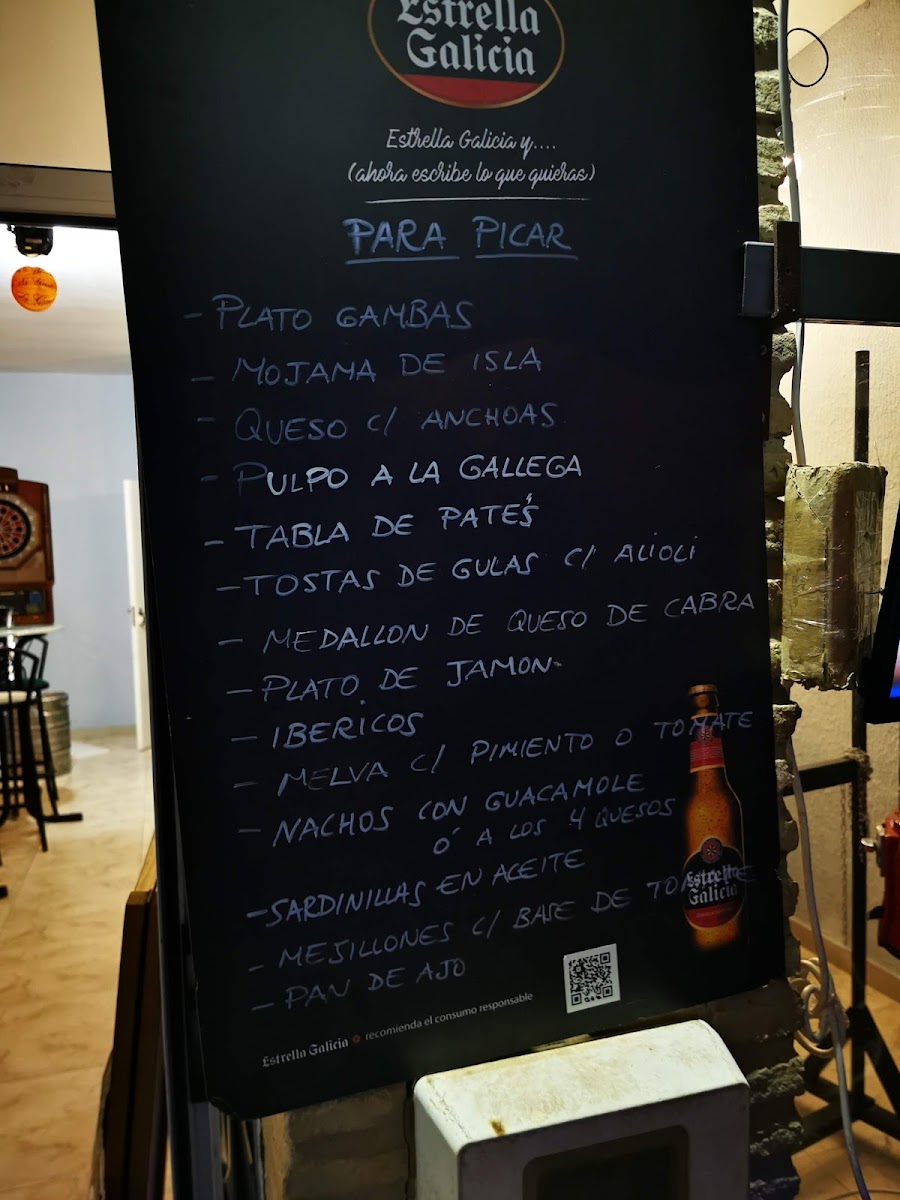 Estrella
Galicia
Estrella Galicia y....
(ahora escribe lo que quieras)
PARA PICAR
- PLATO GAMBAS
- MOJAMA DE ISLA
- QUESO C/ ANCHOAS
- PULPO A LA GALLEGA
- TABLA DE PATÉS
- TOSTAS DE GULAS C/ ALIOLI
- MEDALLON DE QUESO DE CABRA
- PLATO DE JAMON
- IBERICOS
- MELVA C/ PIMIENTO O TOMATE
- NACHOS CON GUACAMOLE
Ó A LOS 4 QUESOS
- SARDINILLAS EN ACEITE
- MEJILLONES C/ BASE DE TOMATE
- PAN DE AJO
Estrella
Galicia
Estrella Galicia recomienda el consumo responsable